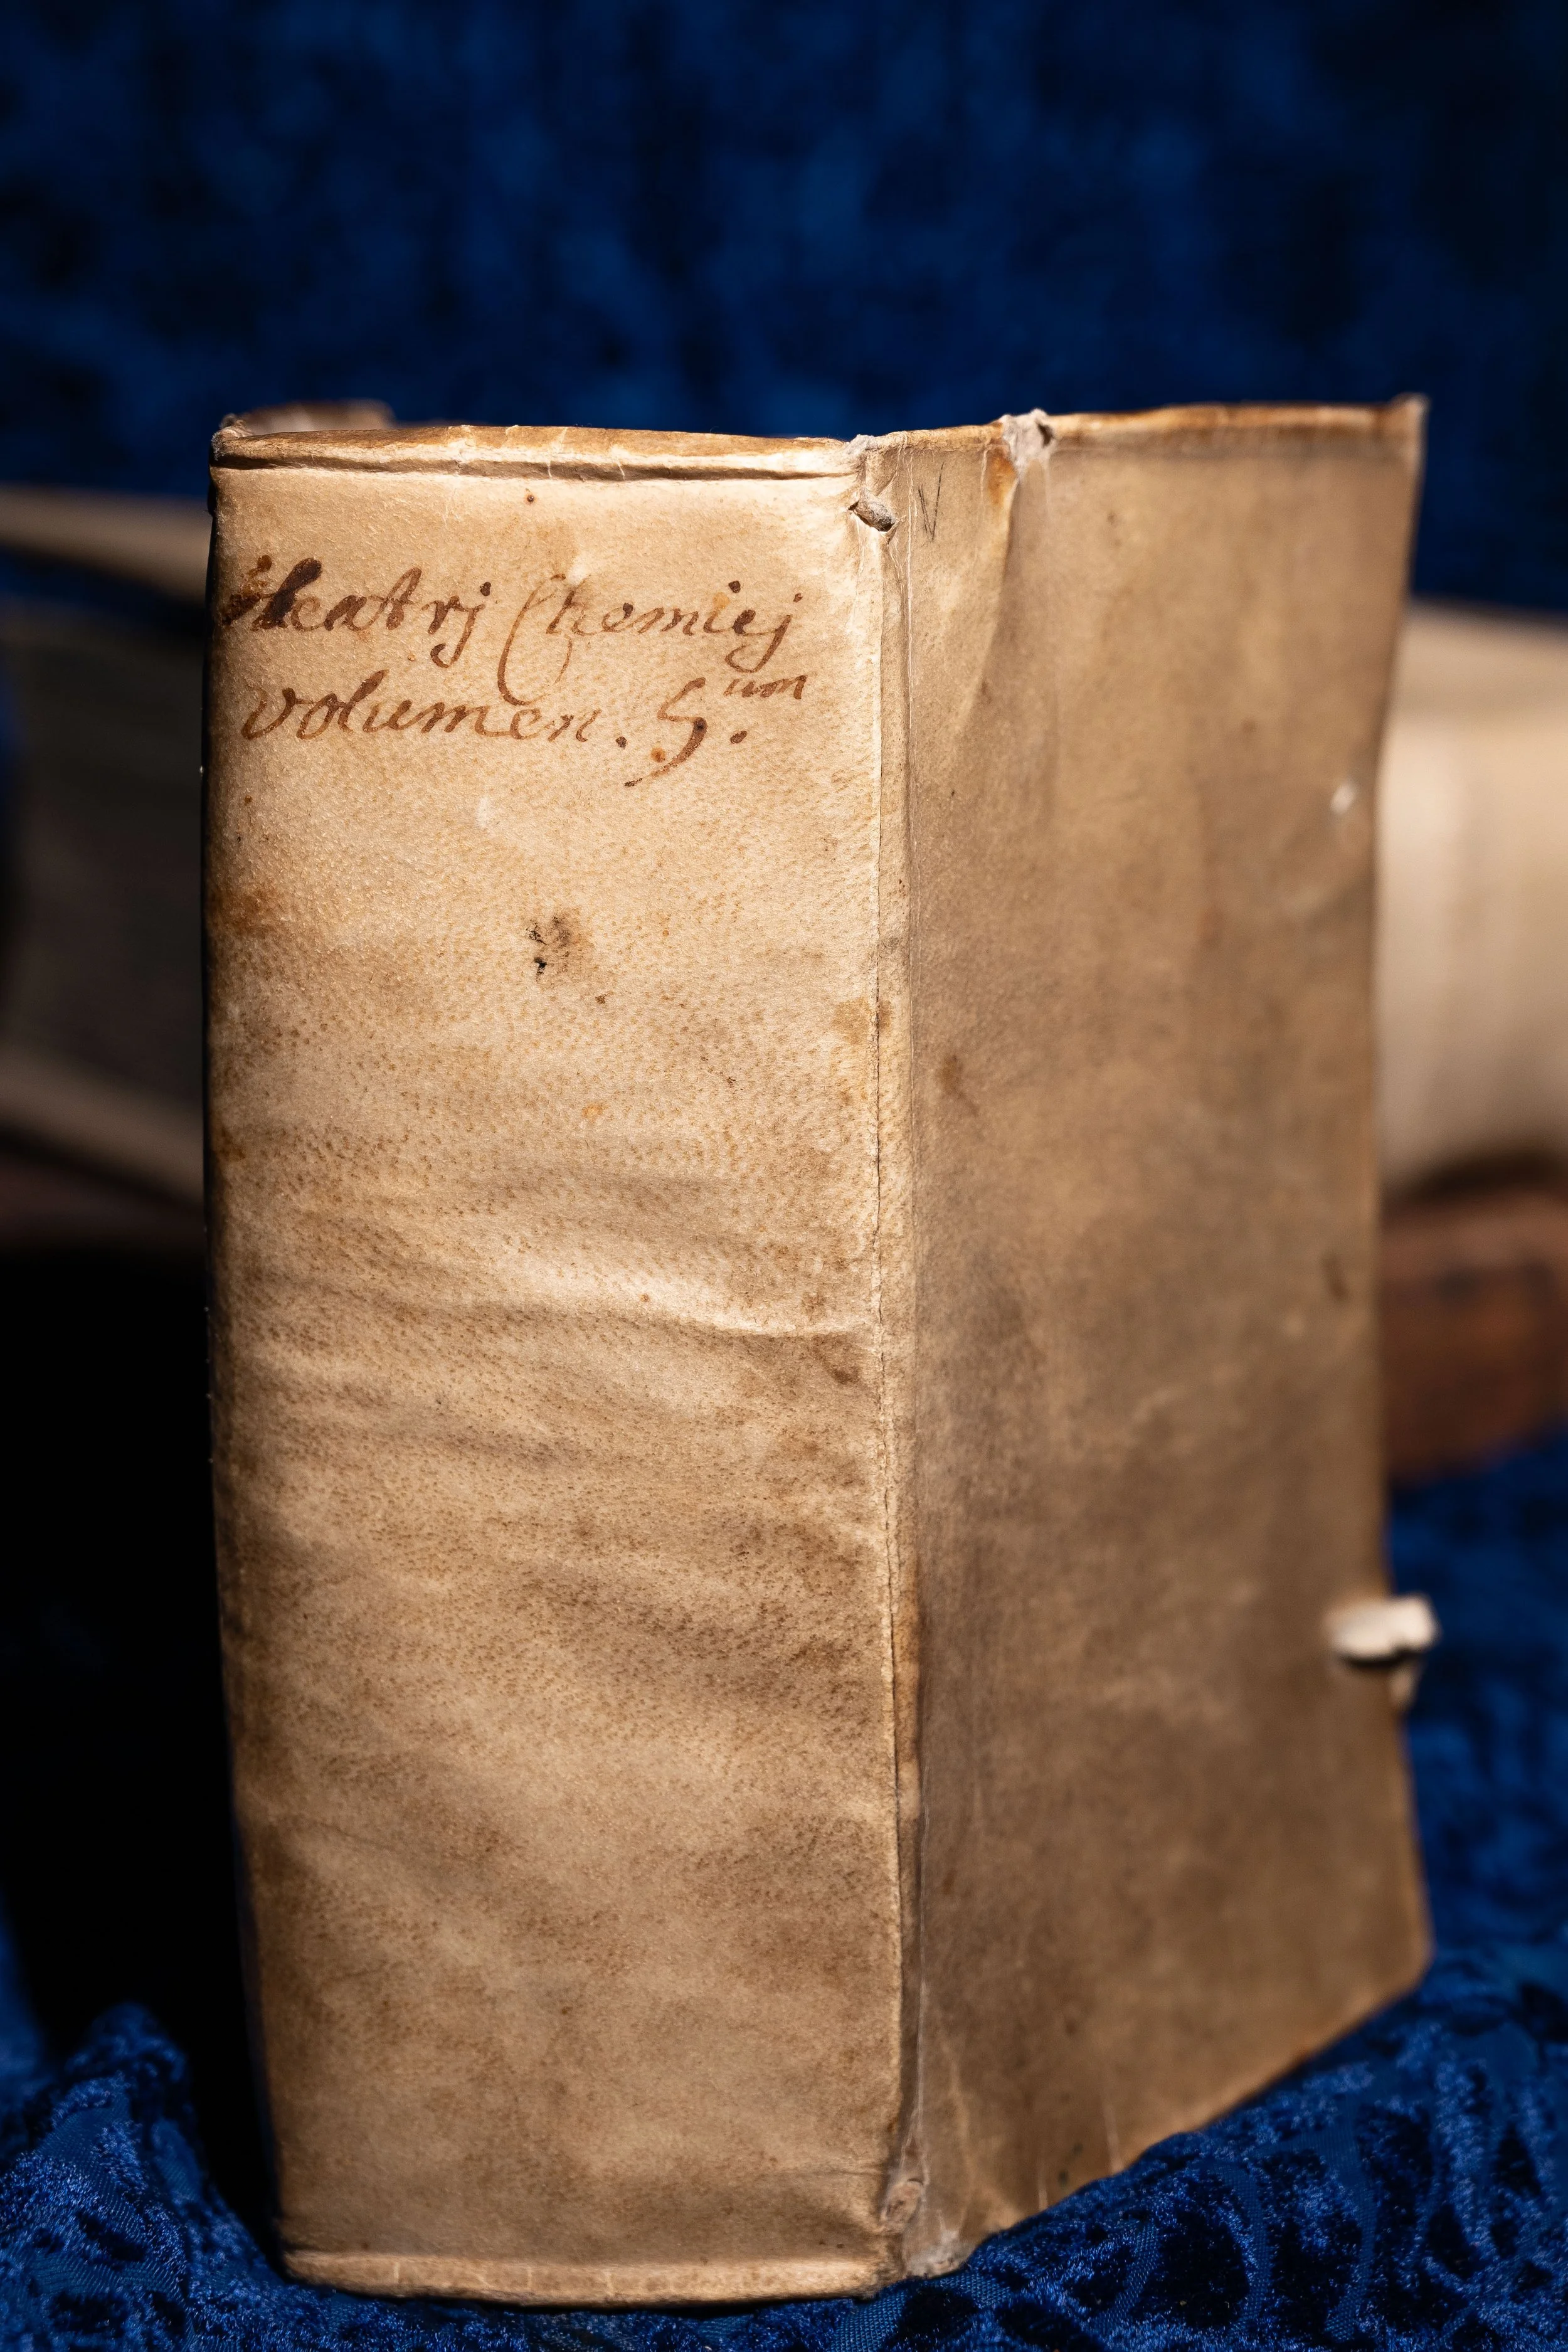 Theatrj Chemicj
volumen. 5.um
V